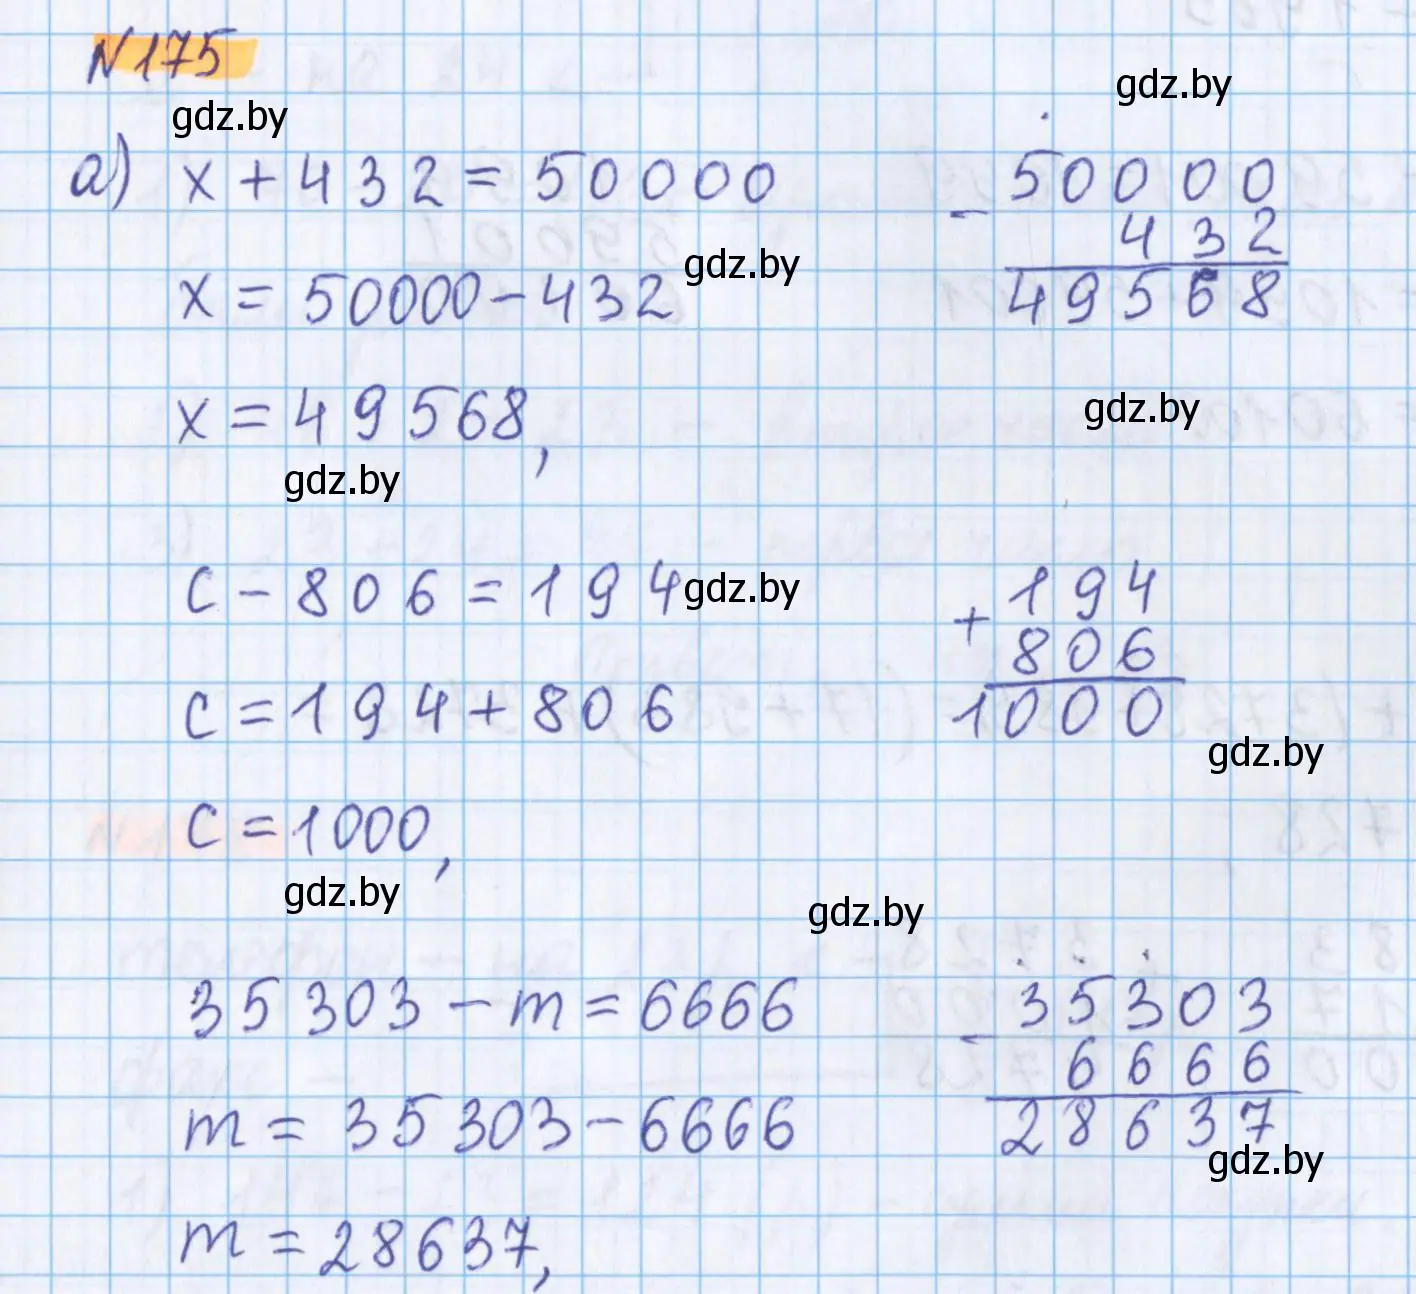 N175
gdz.by
gdz.by
а) x + 432 = 50000
x = 50000 - 432
gdz.by
x = 49568,
gdz.by
- 50000
432
49568
gdz.by
c - 806 = 194
gdz.by
c = 194 + 806
c = 1000,
gdz.by
+ 194
806
1000
gdz.by
gdz.by
35303 - m = 6666
m = 35303 - 6666
m = 28637,
- 35303
6666
28637
gdz.by